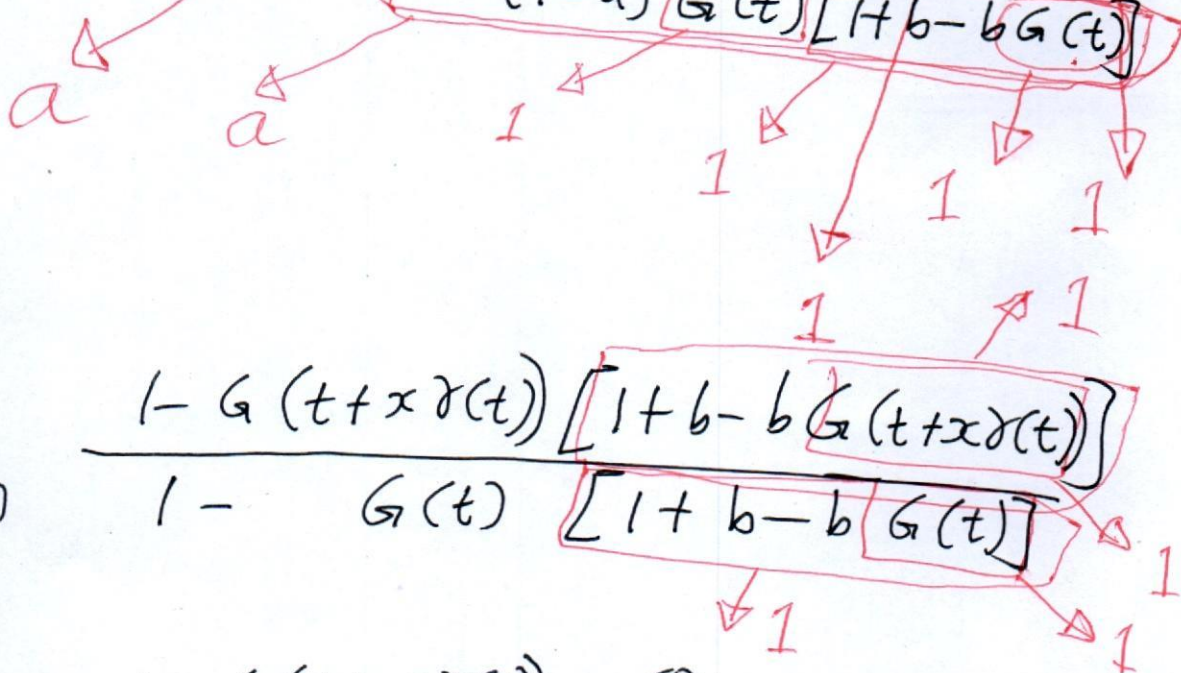 G(t) [1+b-bG(t)]
a a 1 1 1 1
1 1
1- G(t+xγ(t)) [1+b-bG(t+xγ(t))]
1- G(t) [1+b-bG(t)]
1
1 1